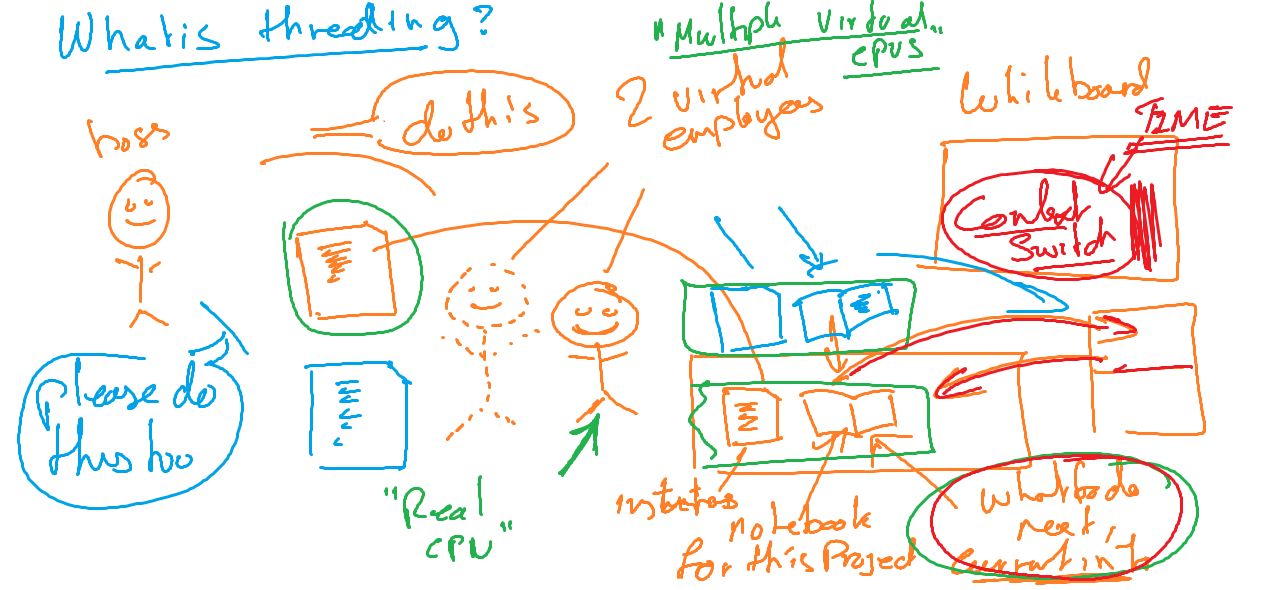 What is threading?
"Multiple Virtual"
CPUS
do this
2 virtual
employees
Whiteboard
TIME
boss
Context
Switch
please do
this too
"Real
CPU"
notebook
for this Project
what to do
next,
current info